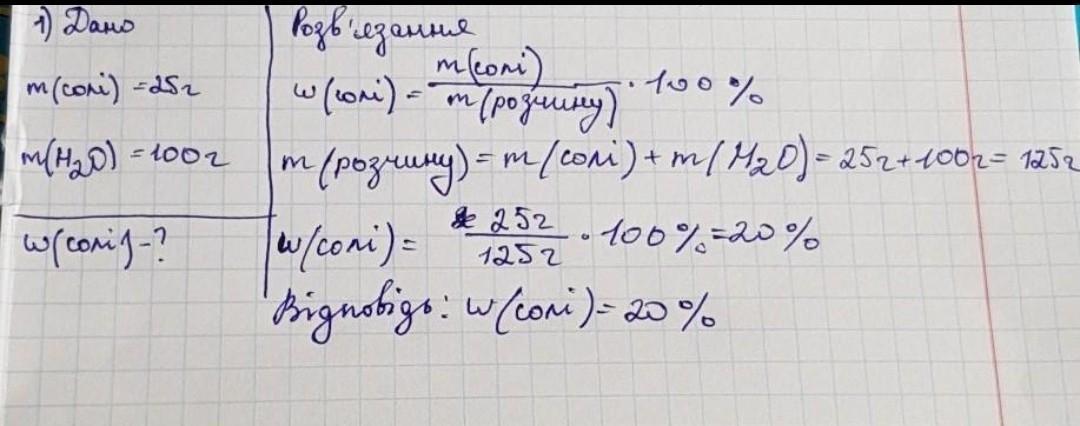 1) Дано
m(солі) = 25г
m(H₂O) = 100г
w(солі) - ?
Розв'язання
w(солі) = m(солі) / m(розчину) · 100 %
m(розчину) = m(солі) + m(H₂O) = 25г + 100г = 125г
w(солі) = 25г / 125г · 100 % = 20 %
Відповідь: w(солі) = 20 %